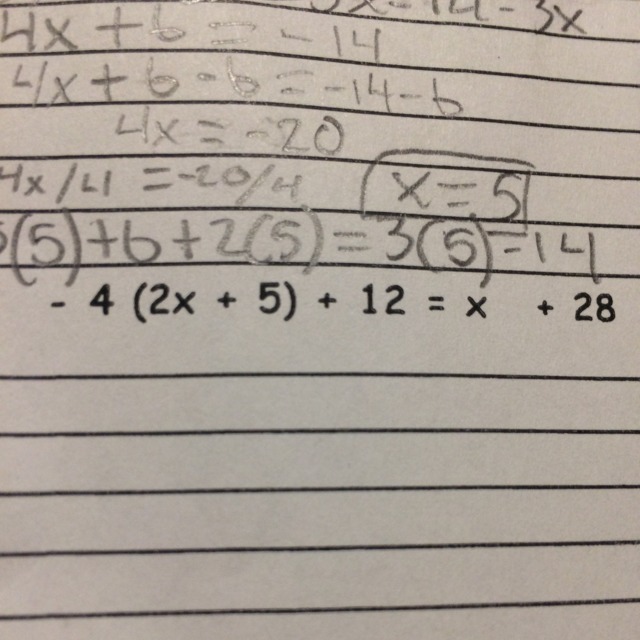 x - 14 - 3x
4x + 6 = -14
4x + 6 - 6 = -14 - 6
4x = -20
4x/4 = -20/4 x = 5
(5) + 6 + 2(5) = 3(5) - 14
- 4 (2x + 5) + 12 = x + 28